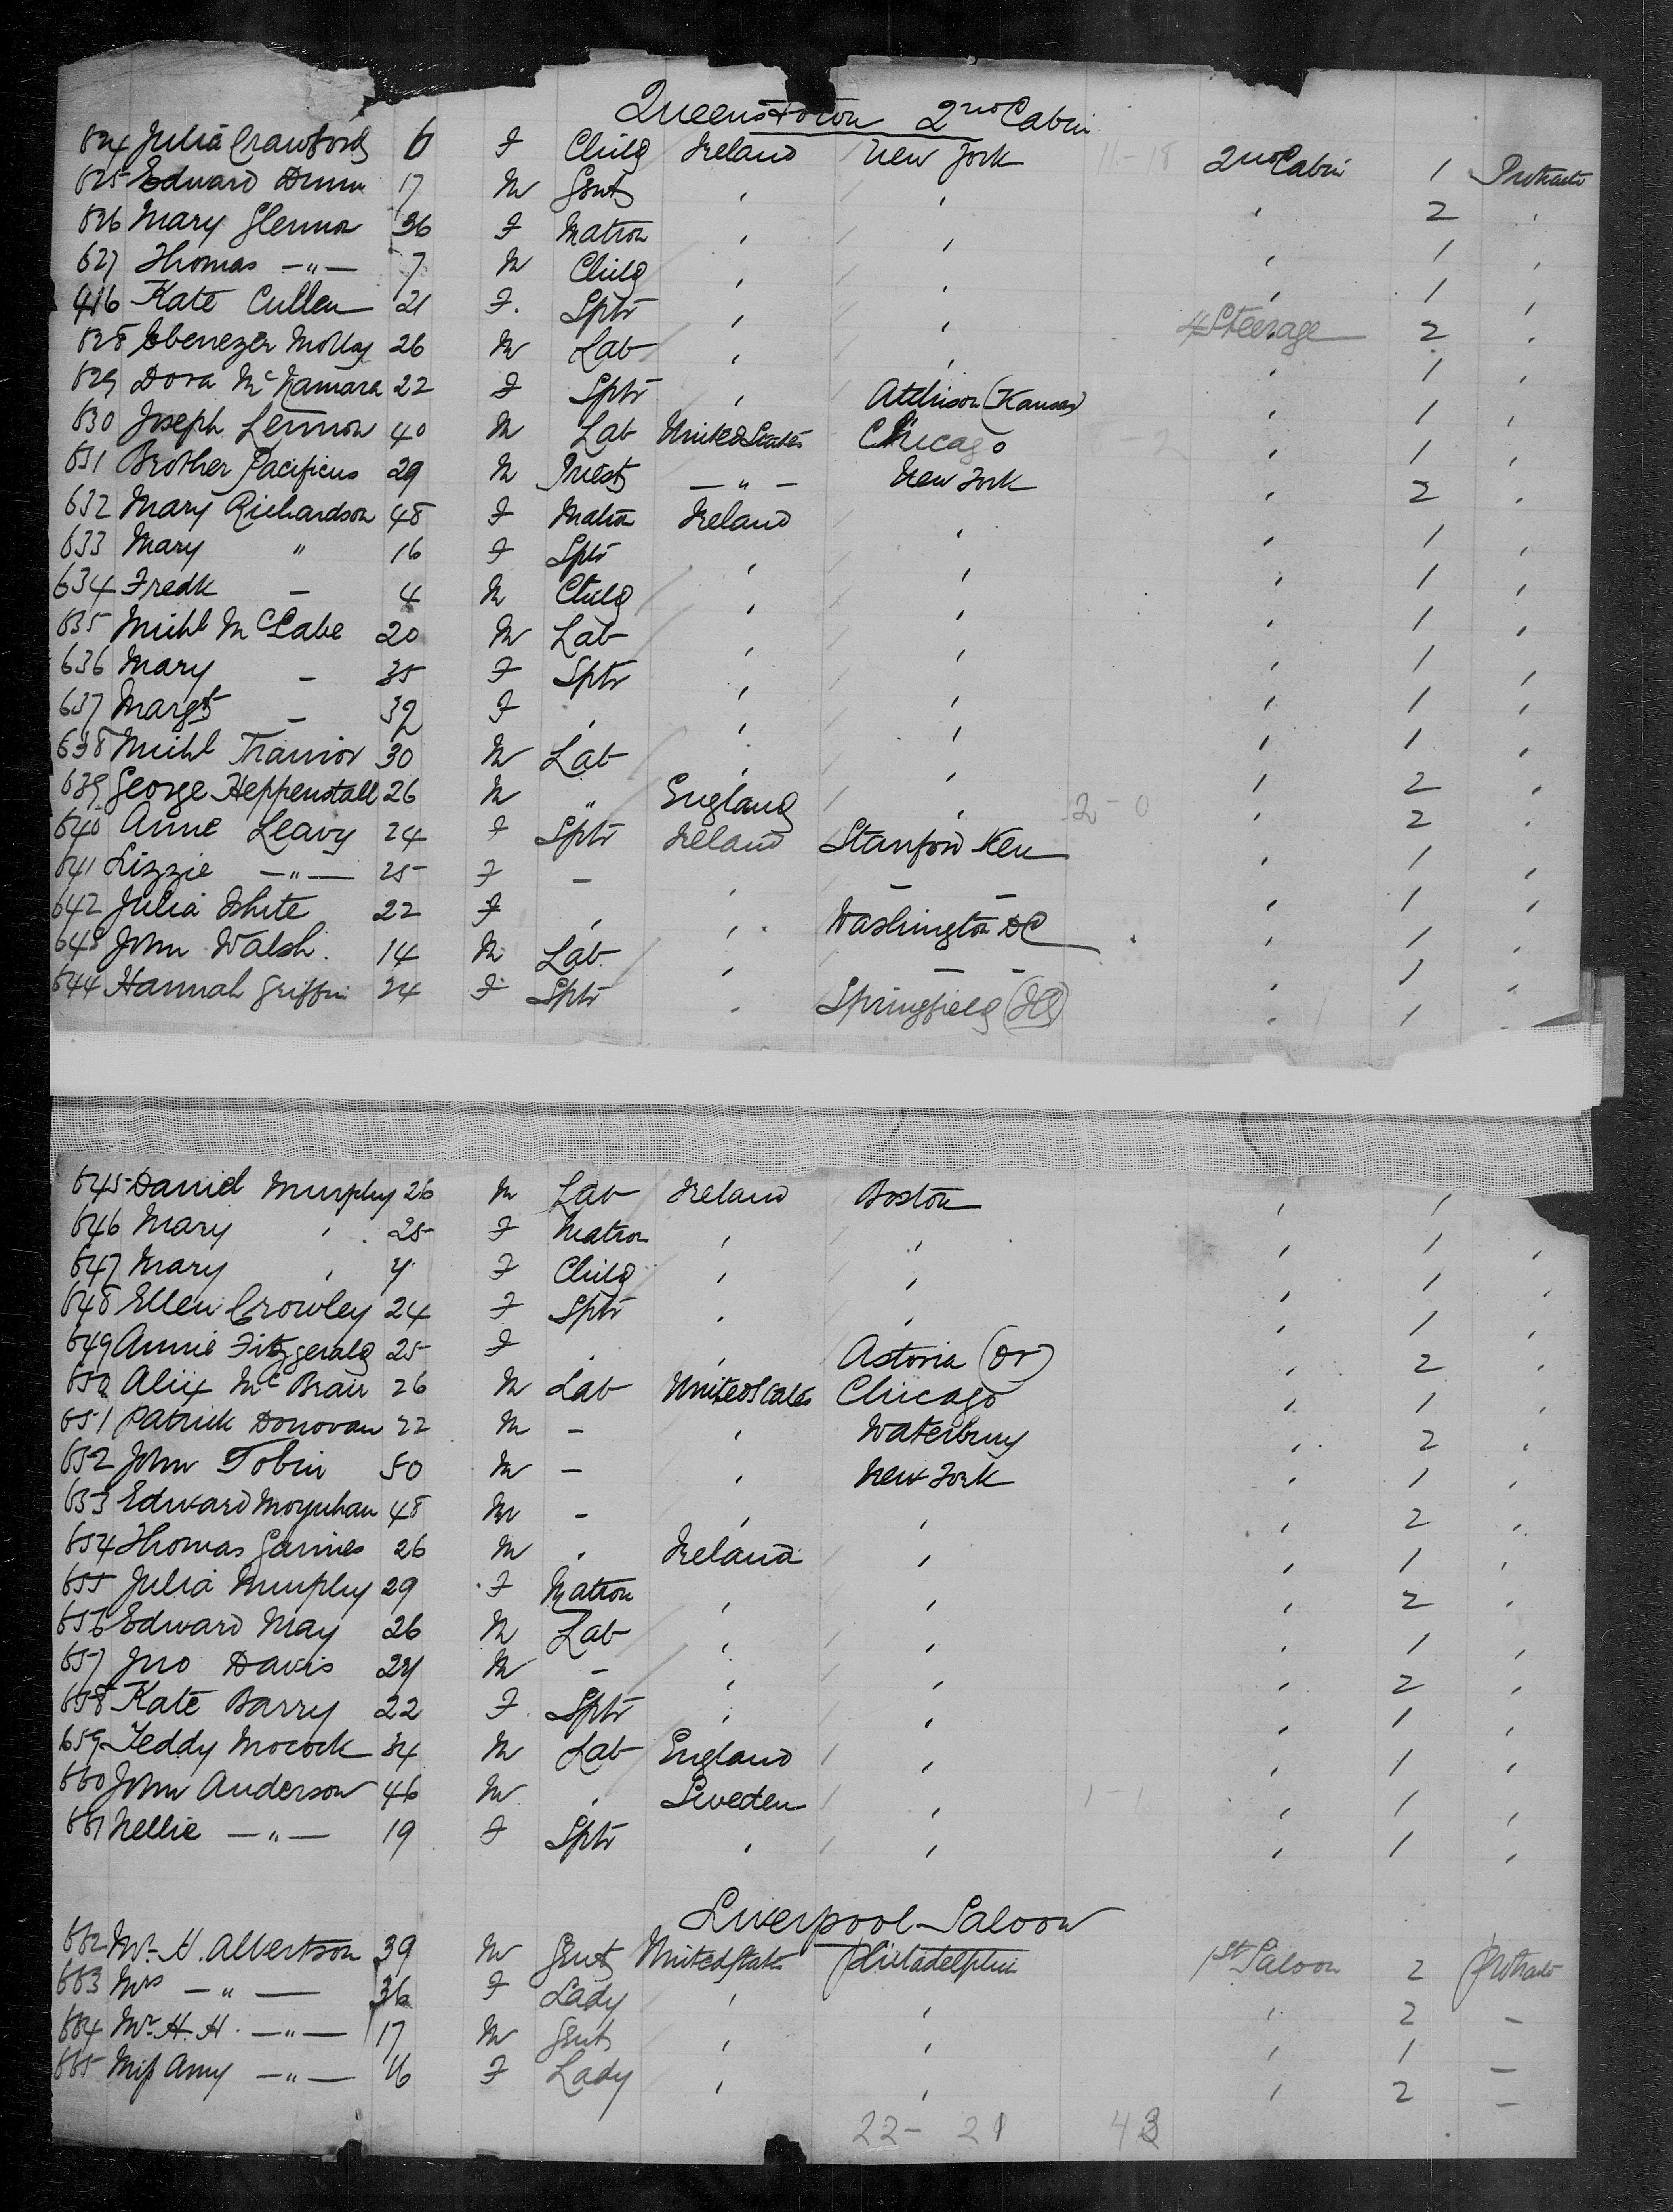 Queenstown 2nd Cabin
624 Julia Crawford 6 F Child Ireland New York 11-18 2nd Cabin 1 Protracted
625 Edward Dunn 17 M Gent , , , 2 ,
626 Mary Glennon 36 F Matron , , , 1 ,
627 Thomas —"— 7 M Child , , , 1 ,
416 Kate Cullen 21 F. Sptr , , 4 Steerage 2 ,
628 Ebenezer Molloy 26 M Lab , , , 1 ,
629 Dora McNamara 22 F Sptr , Atchison (Kansas) , 1 ,
630 Joseph Lennon 40 M Lab United States Chicago , 1 ,
631 Brother Pacificus 29 M Priest — " — New York , 2 ,
632 Mary Richardson 48 F Matron Ireland , , 1 ,
633 Mary " 16 F Sptr , , , 1 ,
634 Fredk — 4 M Child , , , 1 ,
635 Michl McCabe 20 M Lab , , , 1 ,
636 Mary — 35 F Sptr , , , 1 ,
637 Margt — 32 F , , , , 1 ,
638 Michl Trainor 30 M Lab , , , 2 ,
639 George Heppenstall 26 M " England , 2-0 , 2 ,
640 Anne Leavy 24 F Sptr Ireland Stanford Ken , 1 ,
641 Lizzie —"— 25 F — , — — , 1 ,
642 Julia White 22 F , , Washington DC , 1 ,
643 John Walsh. 14 M Lab , — — , 1 ,
644 Hannah Griffin 24 F Sptr , Springfield (Ill) , 1 ,
645 Daniel Murphy 26 M Lab Ireland Boston , 1
646 Mary , 25 F Matron , , , 1 ,
647 Mary , 4 F Child , , , 1 ,
648 Ellen Crowley 24 F Sptr , , , 1 ,
649 Annie Fitzgerald 25 F , , Astoria (Or) , 2 ,
650 Alix McBrair 26 M Lab United States Chicago , 1 ,
651 Patrick Donovan 22 M — , Waterbury , 2 ,
652 John Tobin 50 M — , New York , 1 ,
653 Edward Moynhan 48 M — , , , 2 ,
654 Thomas Gaines 26 M , Ireland , , 1 ,
655 Julia Murphy 29 F Matron , , , 2 ,
656 Edward May 26 M Lab , , , 1 ,
657 Jno Davis 24 M — , , , 2 ,
658 Kate Barry 22 F. Sptr , , , 1 ,
659 Teddy Mocock 34 M Lab England , , 1 ,
660 John Anderson 46 M , Sweden , 1-1 , 1 ,
661 Nellie —"— 19 F Sptr , , , 1 ,
Liverpool Saloon
662 Mr H. Albertson 39 M Gent United States Philadelphia 1st Saloon 2 Protracted
663 Mrs —"— 36 F Lady , , , 2 —
664 Mr H. H. —"— 17 M Gent , , , 1 —
665 Miss Amy —"— 16 F Lady , , , 2 —
22- 21 43